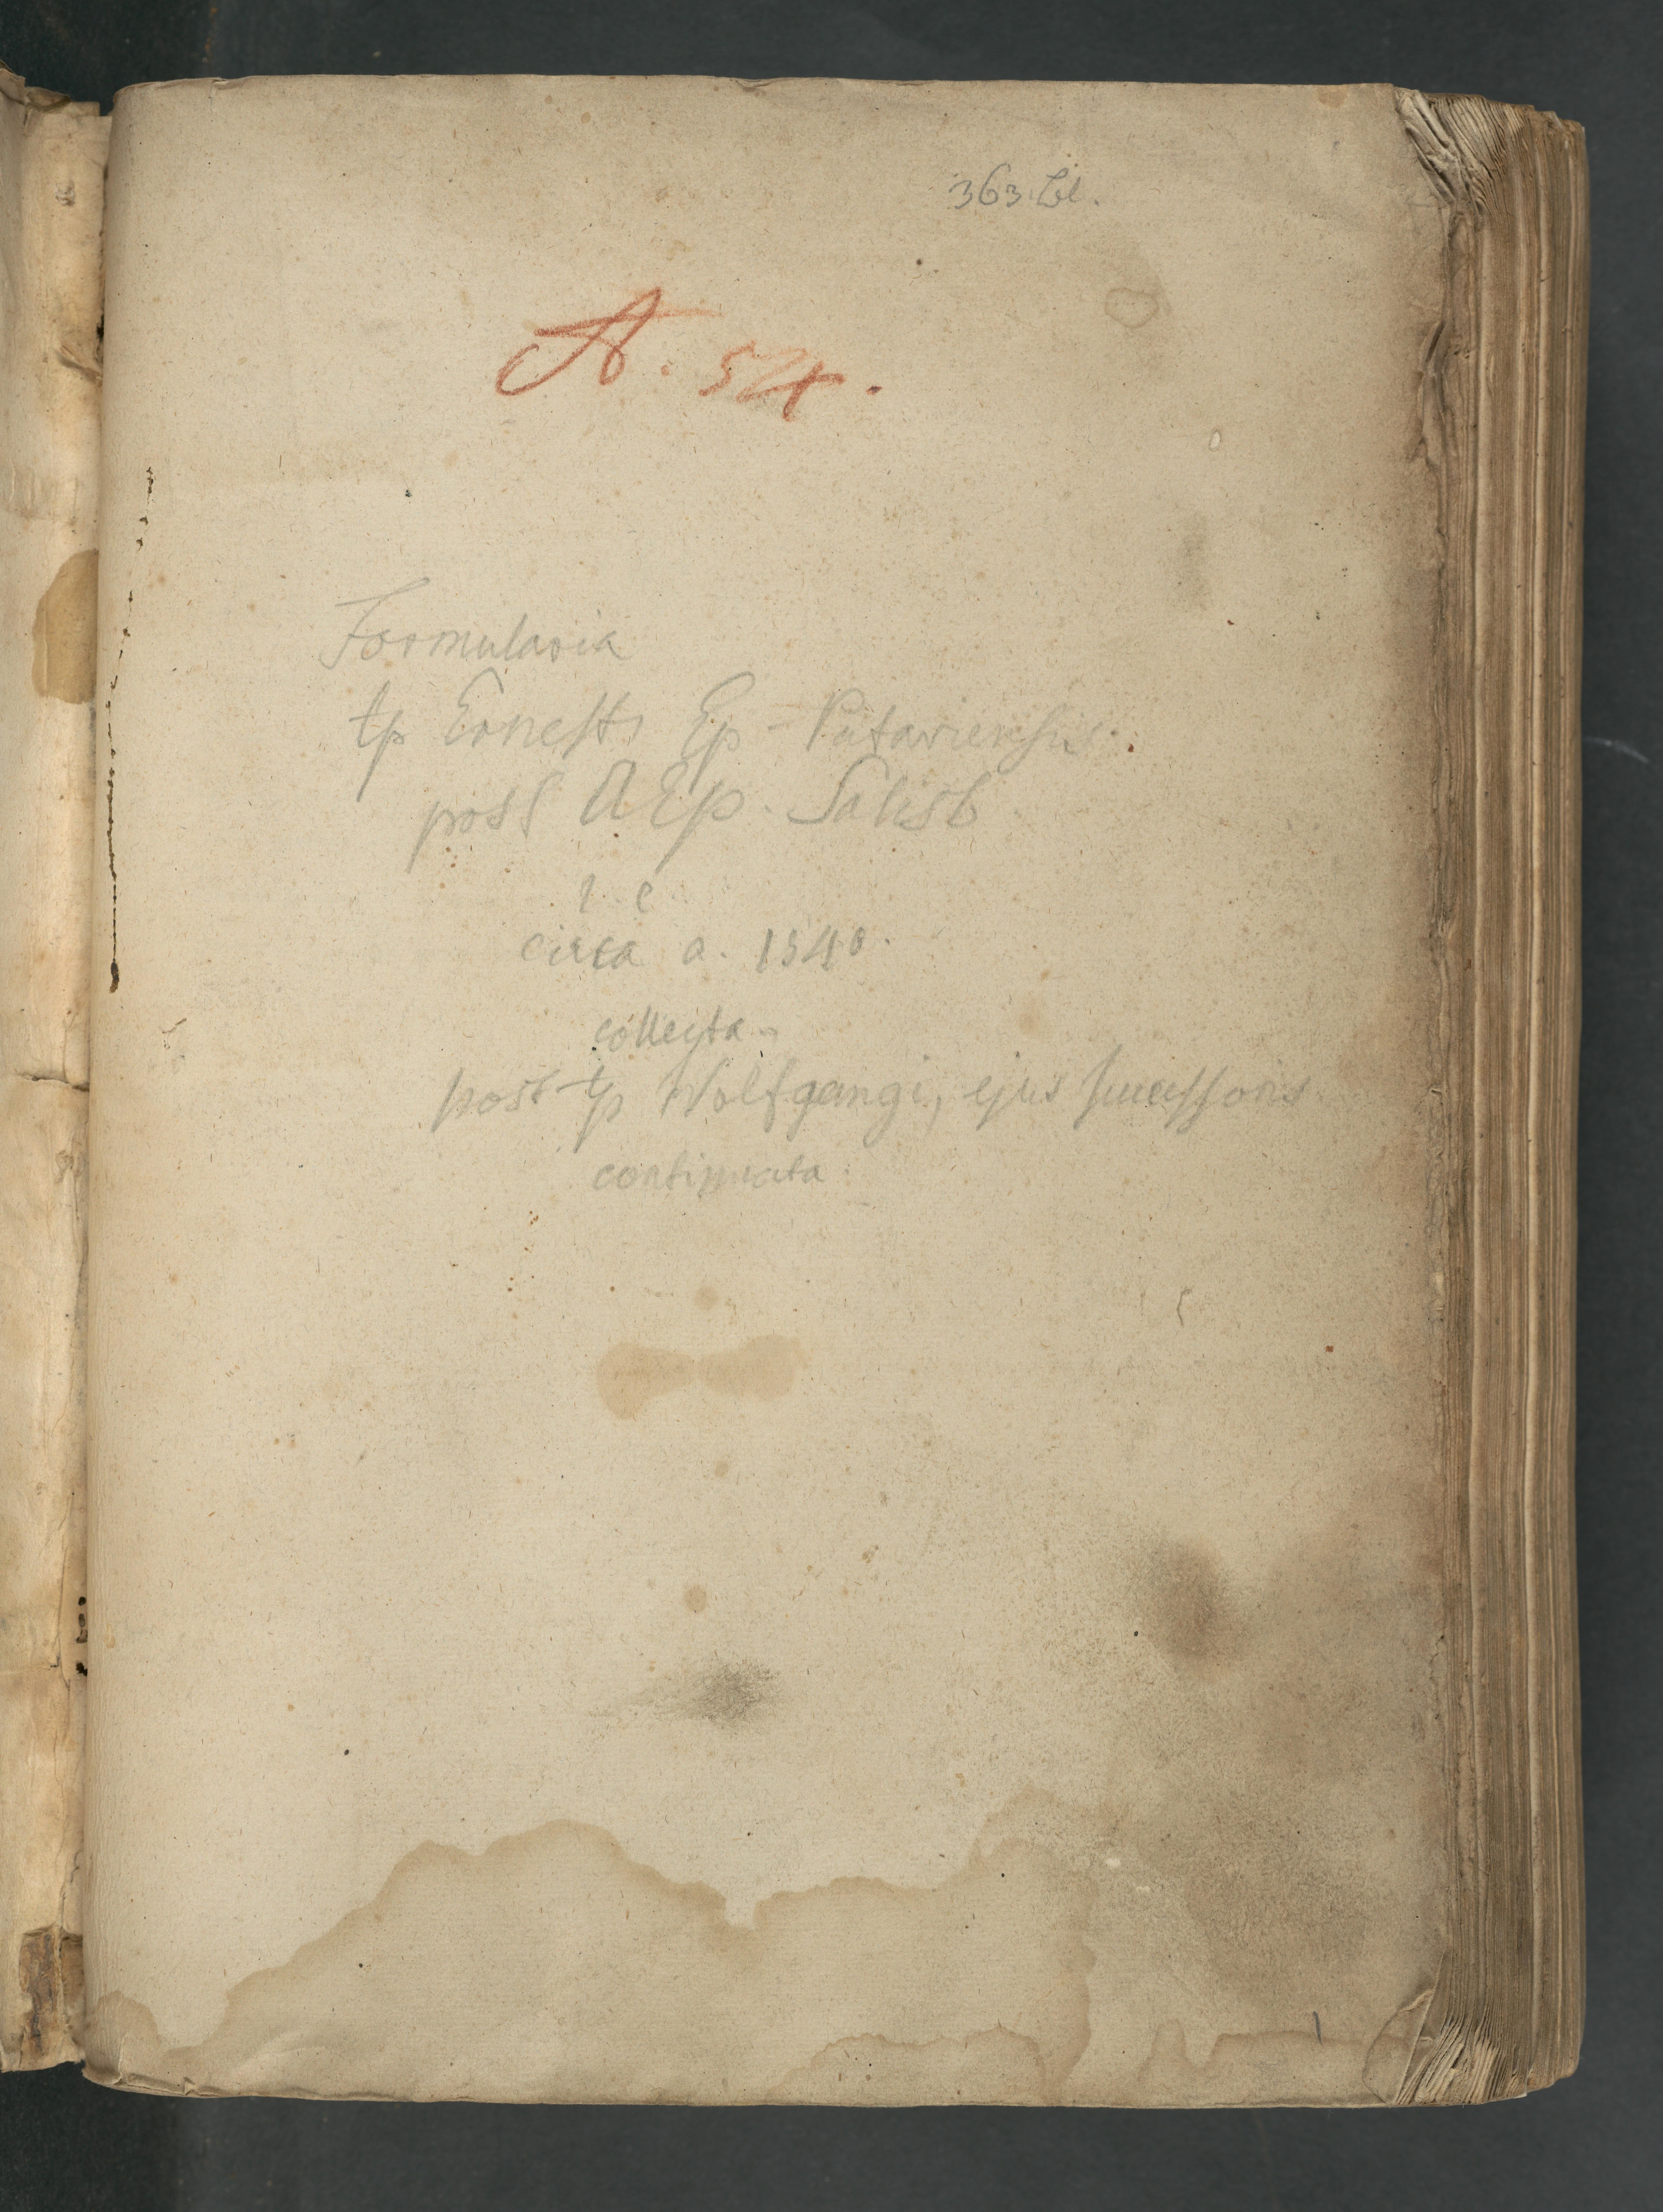 363 Bl.
A. 54.
Formularia
tp Ernesti Ep - Pataviensis.
post AEp. Salisb
i. e
circa a. 1540.
collecta
post tp Wolfgangi, ejus successoris
continuata
1